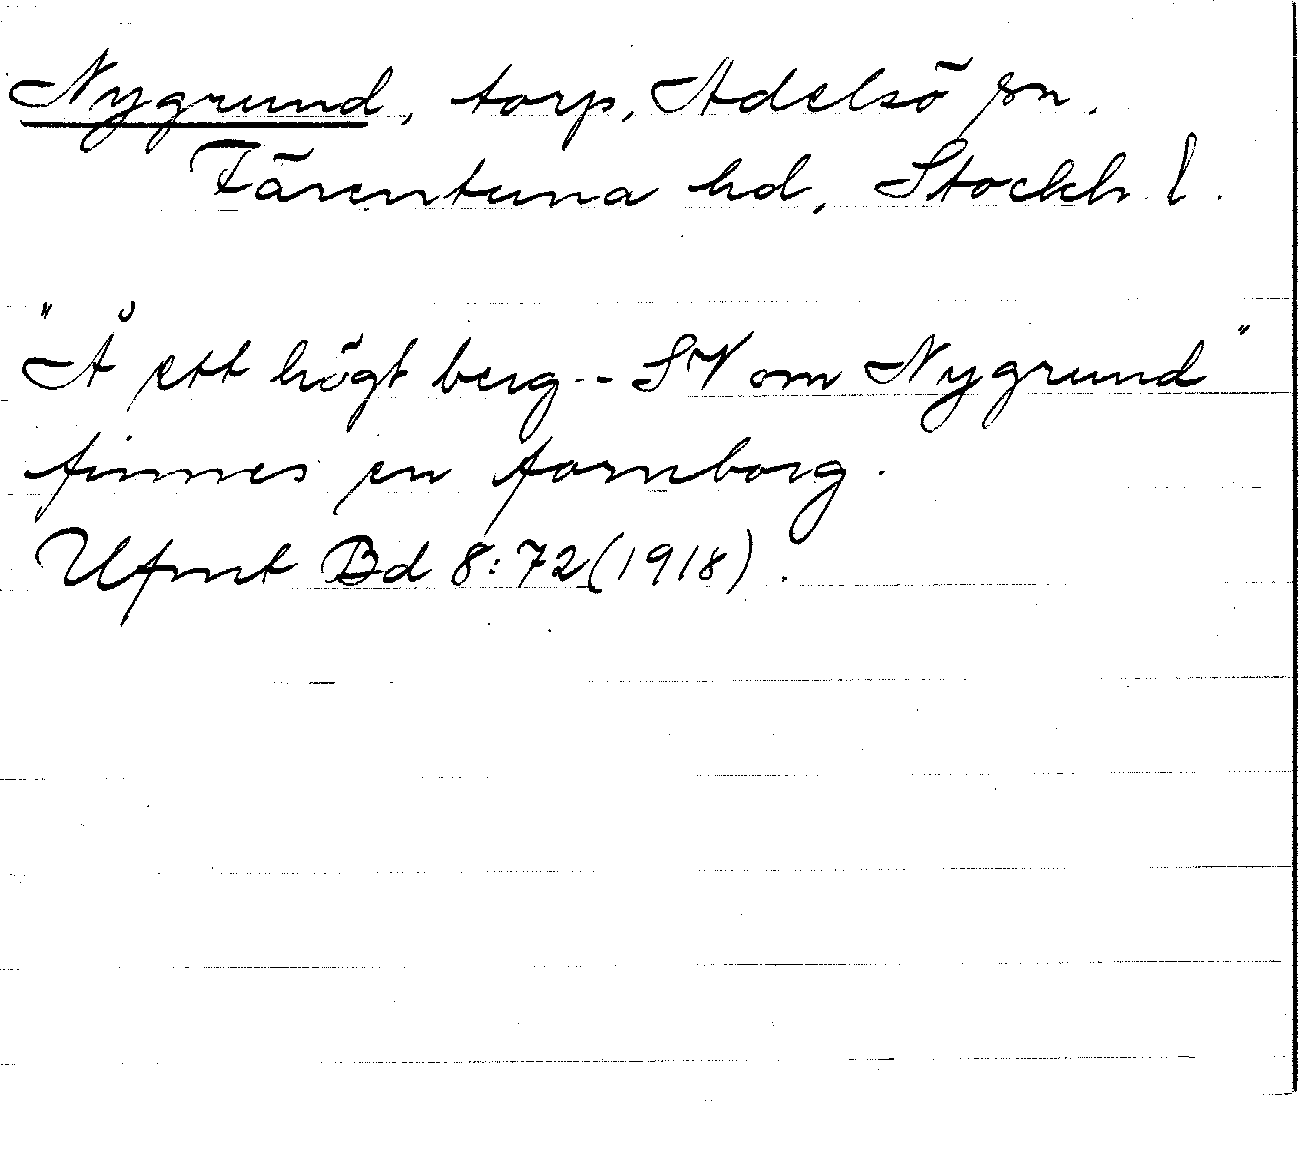 Nygrund, torp, Adelsö sn.
Färentuna hd, Stockh l.
"Å ett högt berg -- SV om Nygrund"
finnes en fornborg.
Ufmt Bd 8:72 (1918).